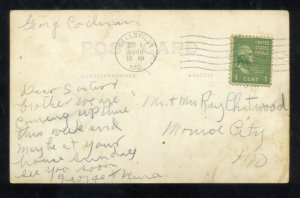 Georg Cochran
WELLSVILLE
10 AM
MO.
POST CARD
CORRESPONDENCE
ADDRESS
1 CENT 1
Dear Sister
brother we are
coming up there
this week end
maybe at your
house Sunday
see you soon
George &
Mr & Mrs Ray
Monroe City
Mo